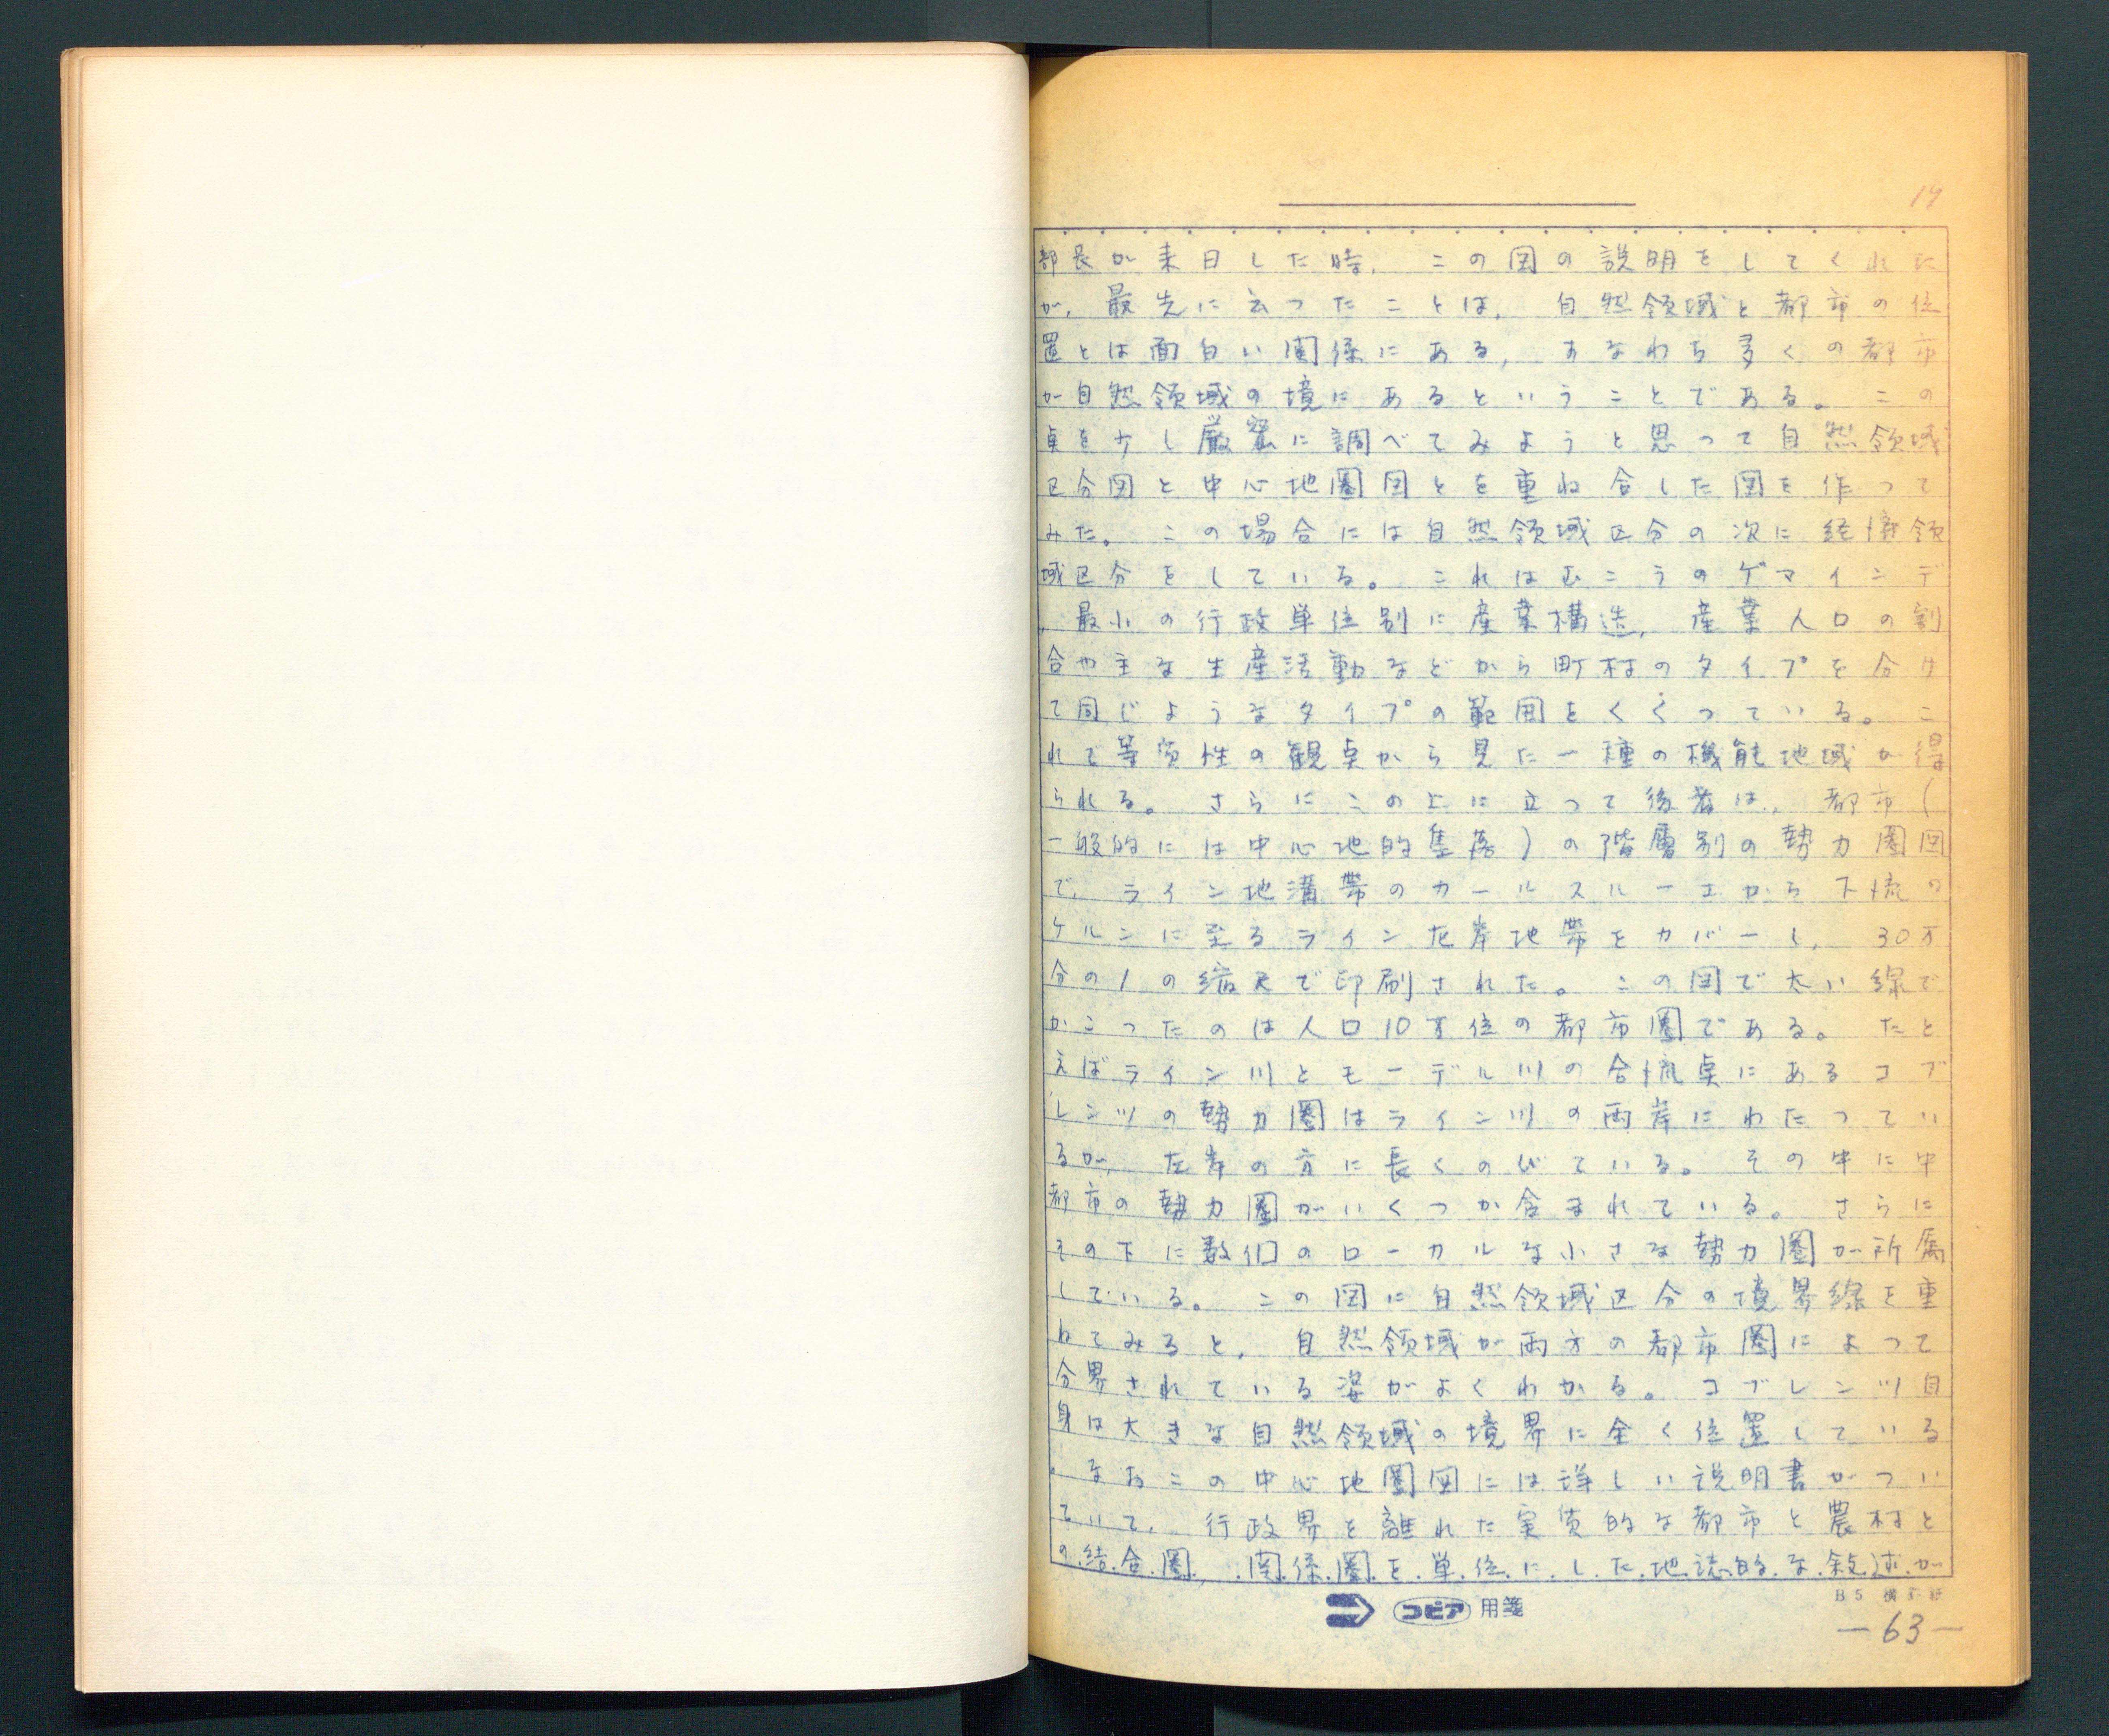 14
部長が来日した時,この図の説明をしてくれた
が,最先に云つたことは,自然領域と都市の位
置とは面白い関係にある,すなわち多くの都市
が自然領域の境にあるということである。この
点を少し厳密に調べてみようと思って自然領域
区分図と中心地圏図とを重ね合した図を作って
みた。この場合には自然領域区分の次に経済領
域区分をしている。これはむこうのゲマインデ
,最小の行政単位別に産業構造,産業人口の割
合や主な生産活動などから町村のタイプを分け
て同じようなタイプの範囲をくくつている。こ
れで等質性の観点から見た一種の機能地域が得
られる。さらにこの上に立つて後者は,都市(
一般的には中心地的集落)の階層別の勢力圏図
で,ライン地溝帯のカールスルーエから下流の
ケルンに至るライン左岸地帯をカバーし,30万
分の1の縮尺で印刷された。この図で太い線で
かこつたのは人口10万位の都市圏である。たと
えばライン川とモーデル川の合流点にあるコブ
レンツの勢力圏はライン川の両岸にわたつてい
るが,左岸の方に長くのびている。その中に中
都市の勢力圏がいくつか含まれている。さらに
その下に数個のローカルな小さな勢力圏が所属
している。この図に自然領域区分の境界線を重
ねてみると,自然領域が両方の都市圏によつて
分界されている姿がよくわかる。コブレンツ自
身は大きな自然領域の境界に全く位置している
。なおこの中心地圏図には詳しい説明書がつい
ていて,行政界を離れた実質的な都市と農村と
の結合圏,関係圏を単位にした地誌的な叙述が
コピア 用箋
B5
—63—